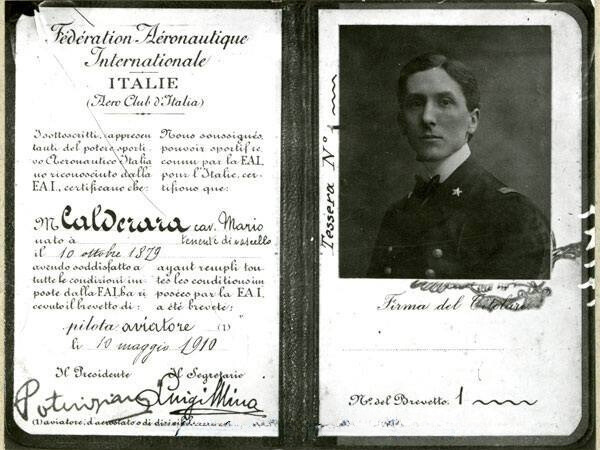 Fédération Aéronautique
Internationale
ITALIE
(Aero Club d'Italia)
I sottoscritti, rappresen
tanti del potere sporti
vo Aeronautico Italia
no riconosciuto dalla
F.A.I., certificano che:
Nous soussignés,
pouvoir sportif re,
connu par la F.A.I.
pour l'Italie, cer-
tifions que:
M Calderara cav. Mario
nato à tenente di vascello
il 10 ottobre 1879
avendo soddisfatto a
tutte le condizioni im
poste dalla F.A.I. ha ri
cevuto il brevetto di:
ayant rempli tou-
tes les conditions im
posées par la F.A.I.
a été breveté:
pilota aviatore (1)
li 10 maggio 1910
Il Presidente Il Segretario
Luigi Mina
(1) aviatore, d'aerostato o di
Tessera N° 1
Firma del
N.° del Brevetto. 1